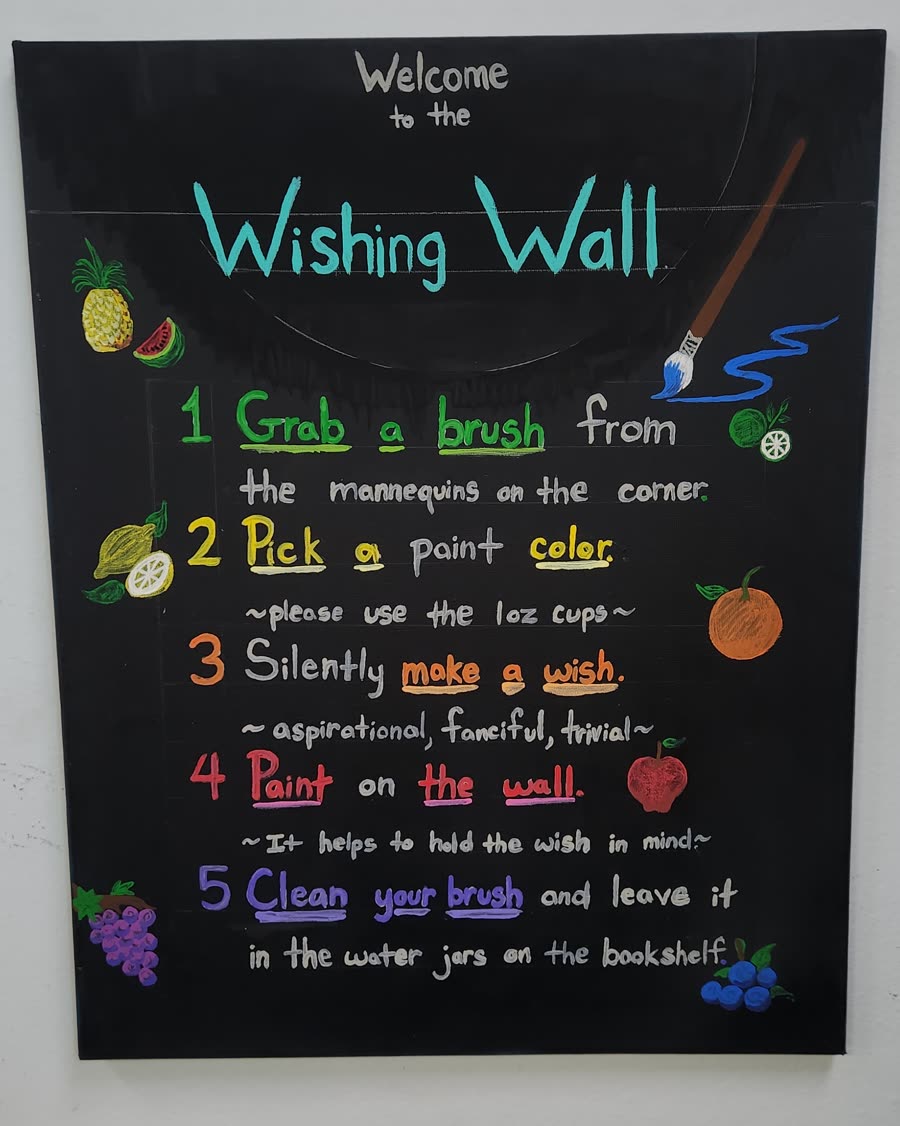 Welcome
to the
Wishing Wall
1 Grab a brush from
the mannequins on the corner.
2 Pick a paint color.
~please use the 1oz cups~
3 Silently make a wish.
~aspirational, fanciful, trivial~
4 Paint on the wall.
~It helps to hold the wish in mind~
5 Clean your brush and leave it
in the water jars on the bookshelf.